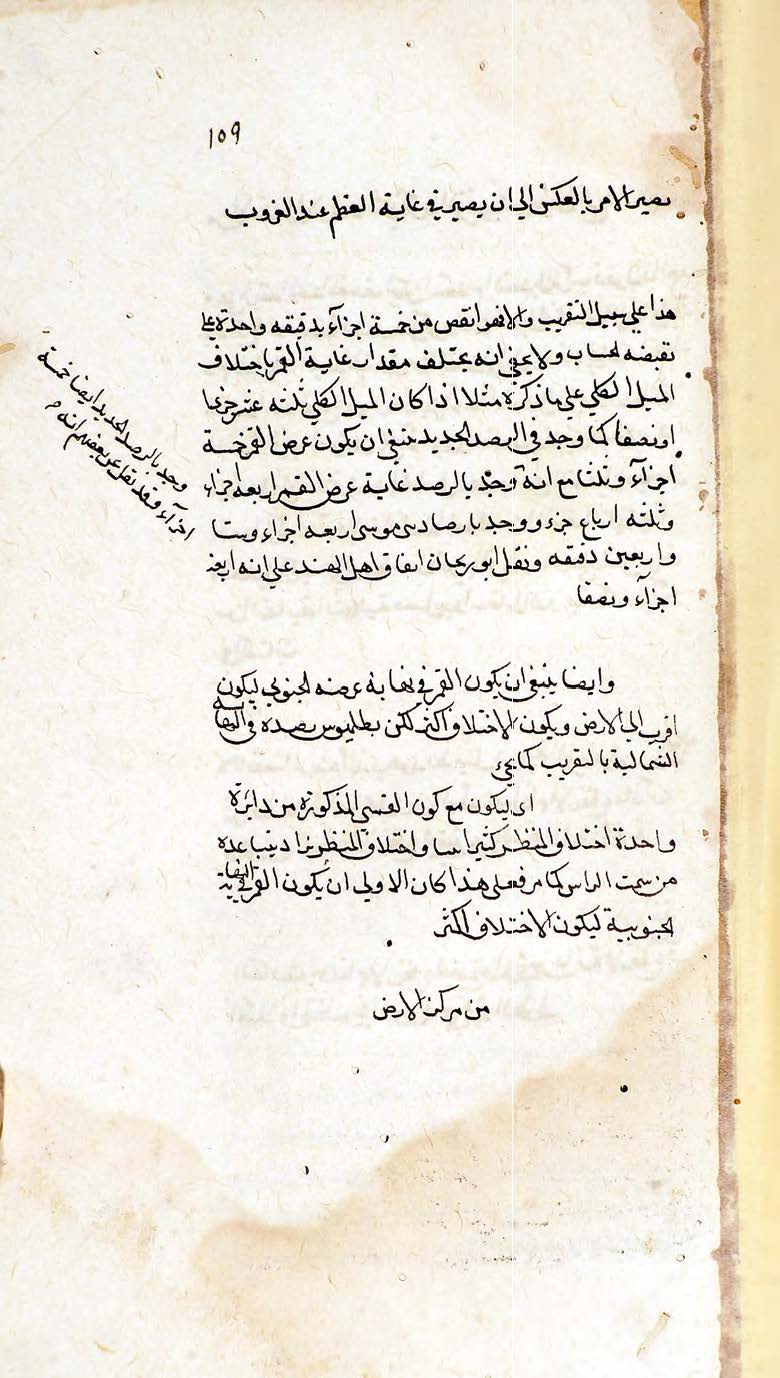 109
يصير الامر بالعكس الي ان يصير في غاية العظم عند الغروب
هذا علي سبيل التقريب والا فهو انقص من خمسة اجزآء بدقيقه واحدة علي
تقبضه لحساب ولا يخفي انه يختلف مقدار غاية القمر باختلاف
الميل الكلي علي ما ذكره مثلا اذا كان الميل الكلي ثلثه عشر جزءا
او نصفا كما وجد في الرصد الجديد ينبغي ان يكون عرض القمر خمسة
اجزآء وثلثا مع انه وجد بالرصد غاية عرض القمر اربعه اجزاء
وثلثه ارباع جزء ووجد بارصاد بني موسي اربعه اجزاء وستا
واربعين دقيقه ونقل ابو ريحان اتفاق اهل الهند علي انه اربعة
اجزآء ونصفا
وجد بالرصد الجديد ايضا خمسة
اجزآء وقد نقل عن بعضهم انه
وايضا ينبغي ان يكون القمر في نهاية عرضه الجنوبي ليكون
اقرب الي الارض ويكون الاختلاف اكثر لكن بطليموس رصده في النهاية
الشمالية بالتقريب كما يجيء
اي ليكون مع كون القسي المذكورة من دائرة
واحدة اختلاف المنظر كثيرا واختلاف المنظر يزاد بتباعده
من سمت الراس كما مر فعلي هذا كان الاولي ان يكون القمر في النهاية
الجنوبية ليكون الاختلاف اكثر
من مركز الارض